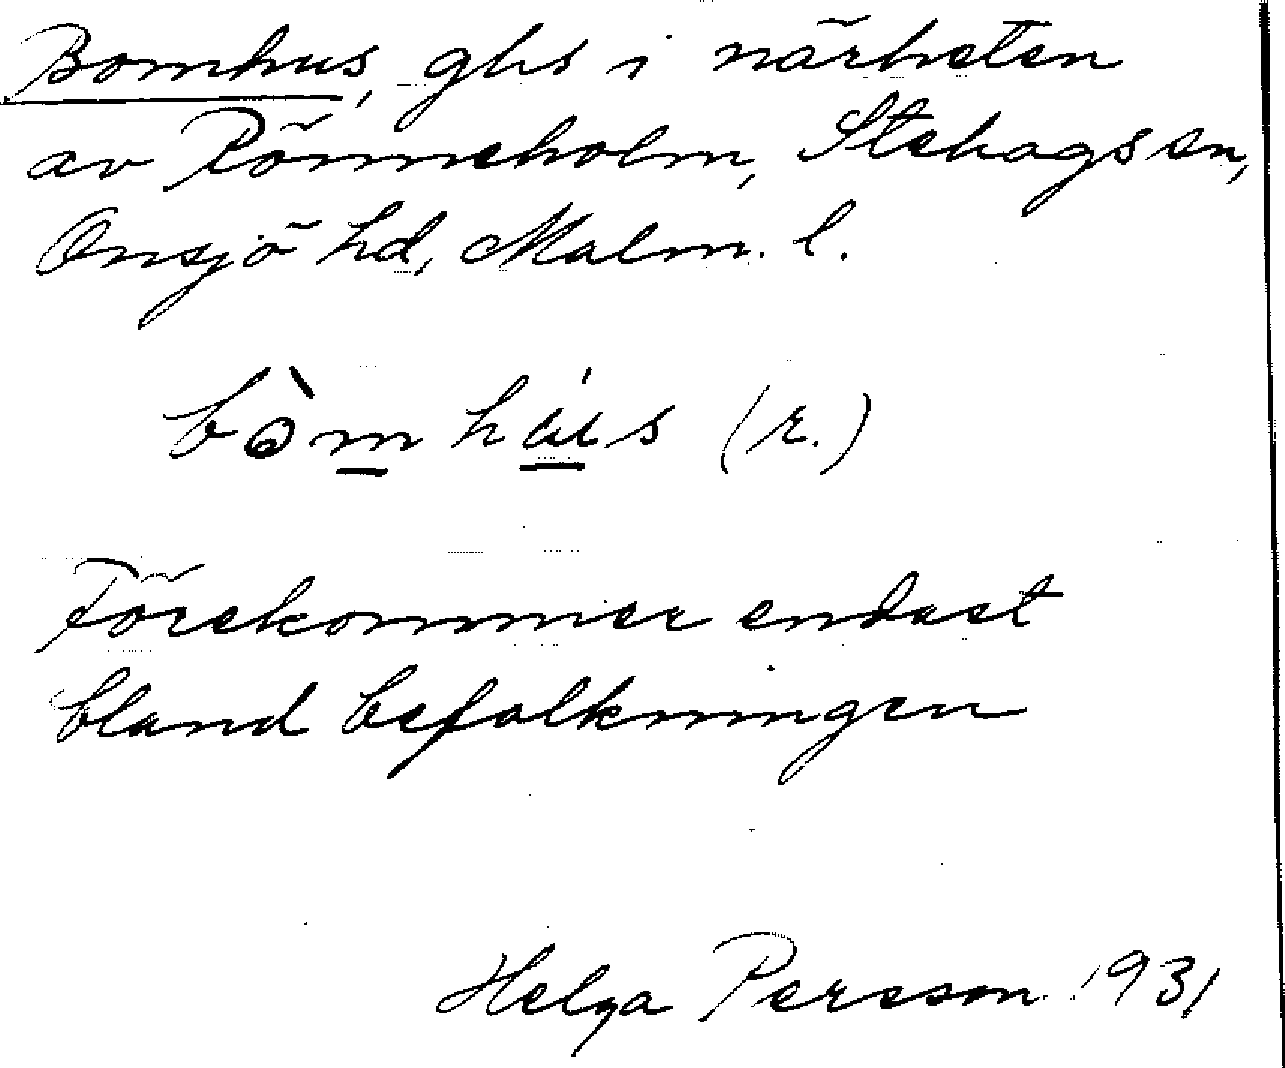 Bomhus, ghs i närheten
av Rönneholm, Stehags sn,
Onsjö hd, Malm. l.
bòm háus (r.)
Förekommer endast
bland befolkningen
Helga Persson 1931